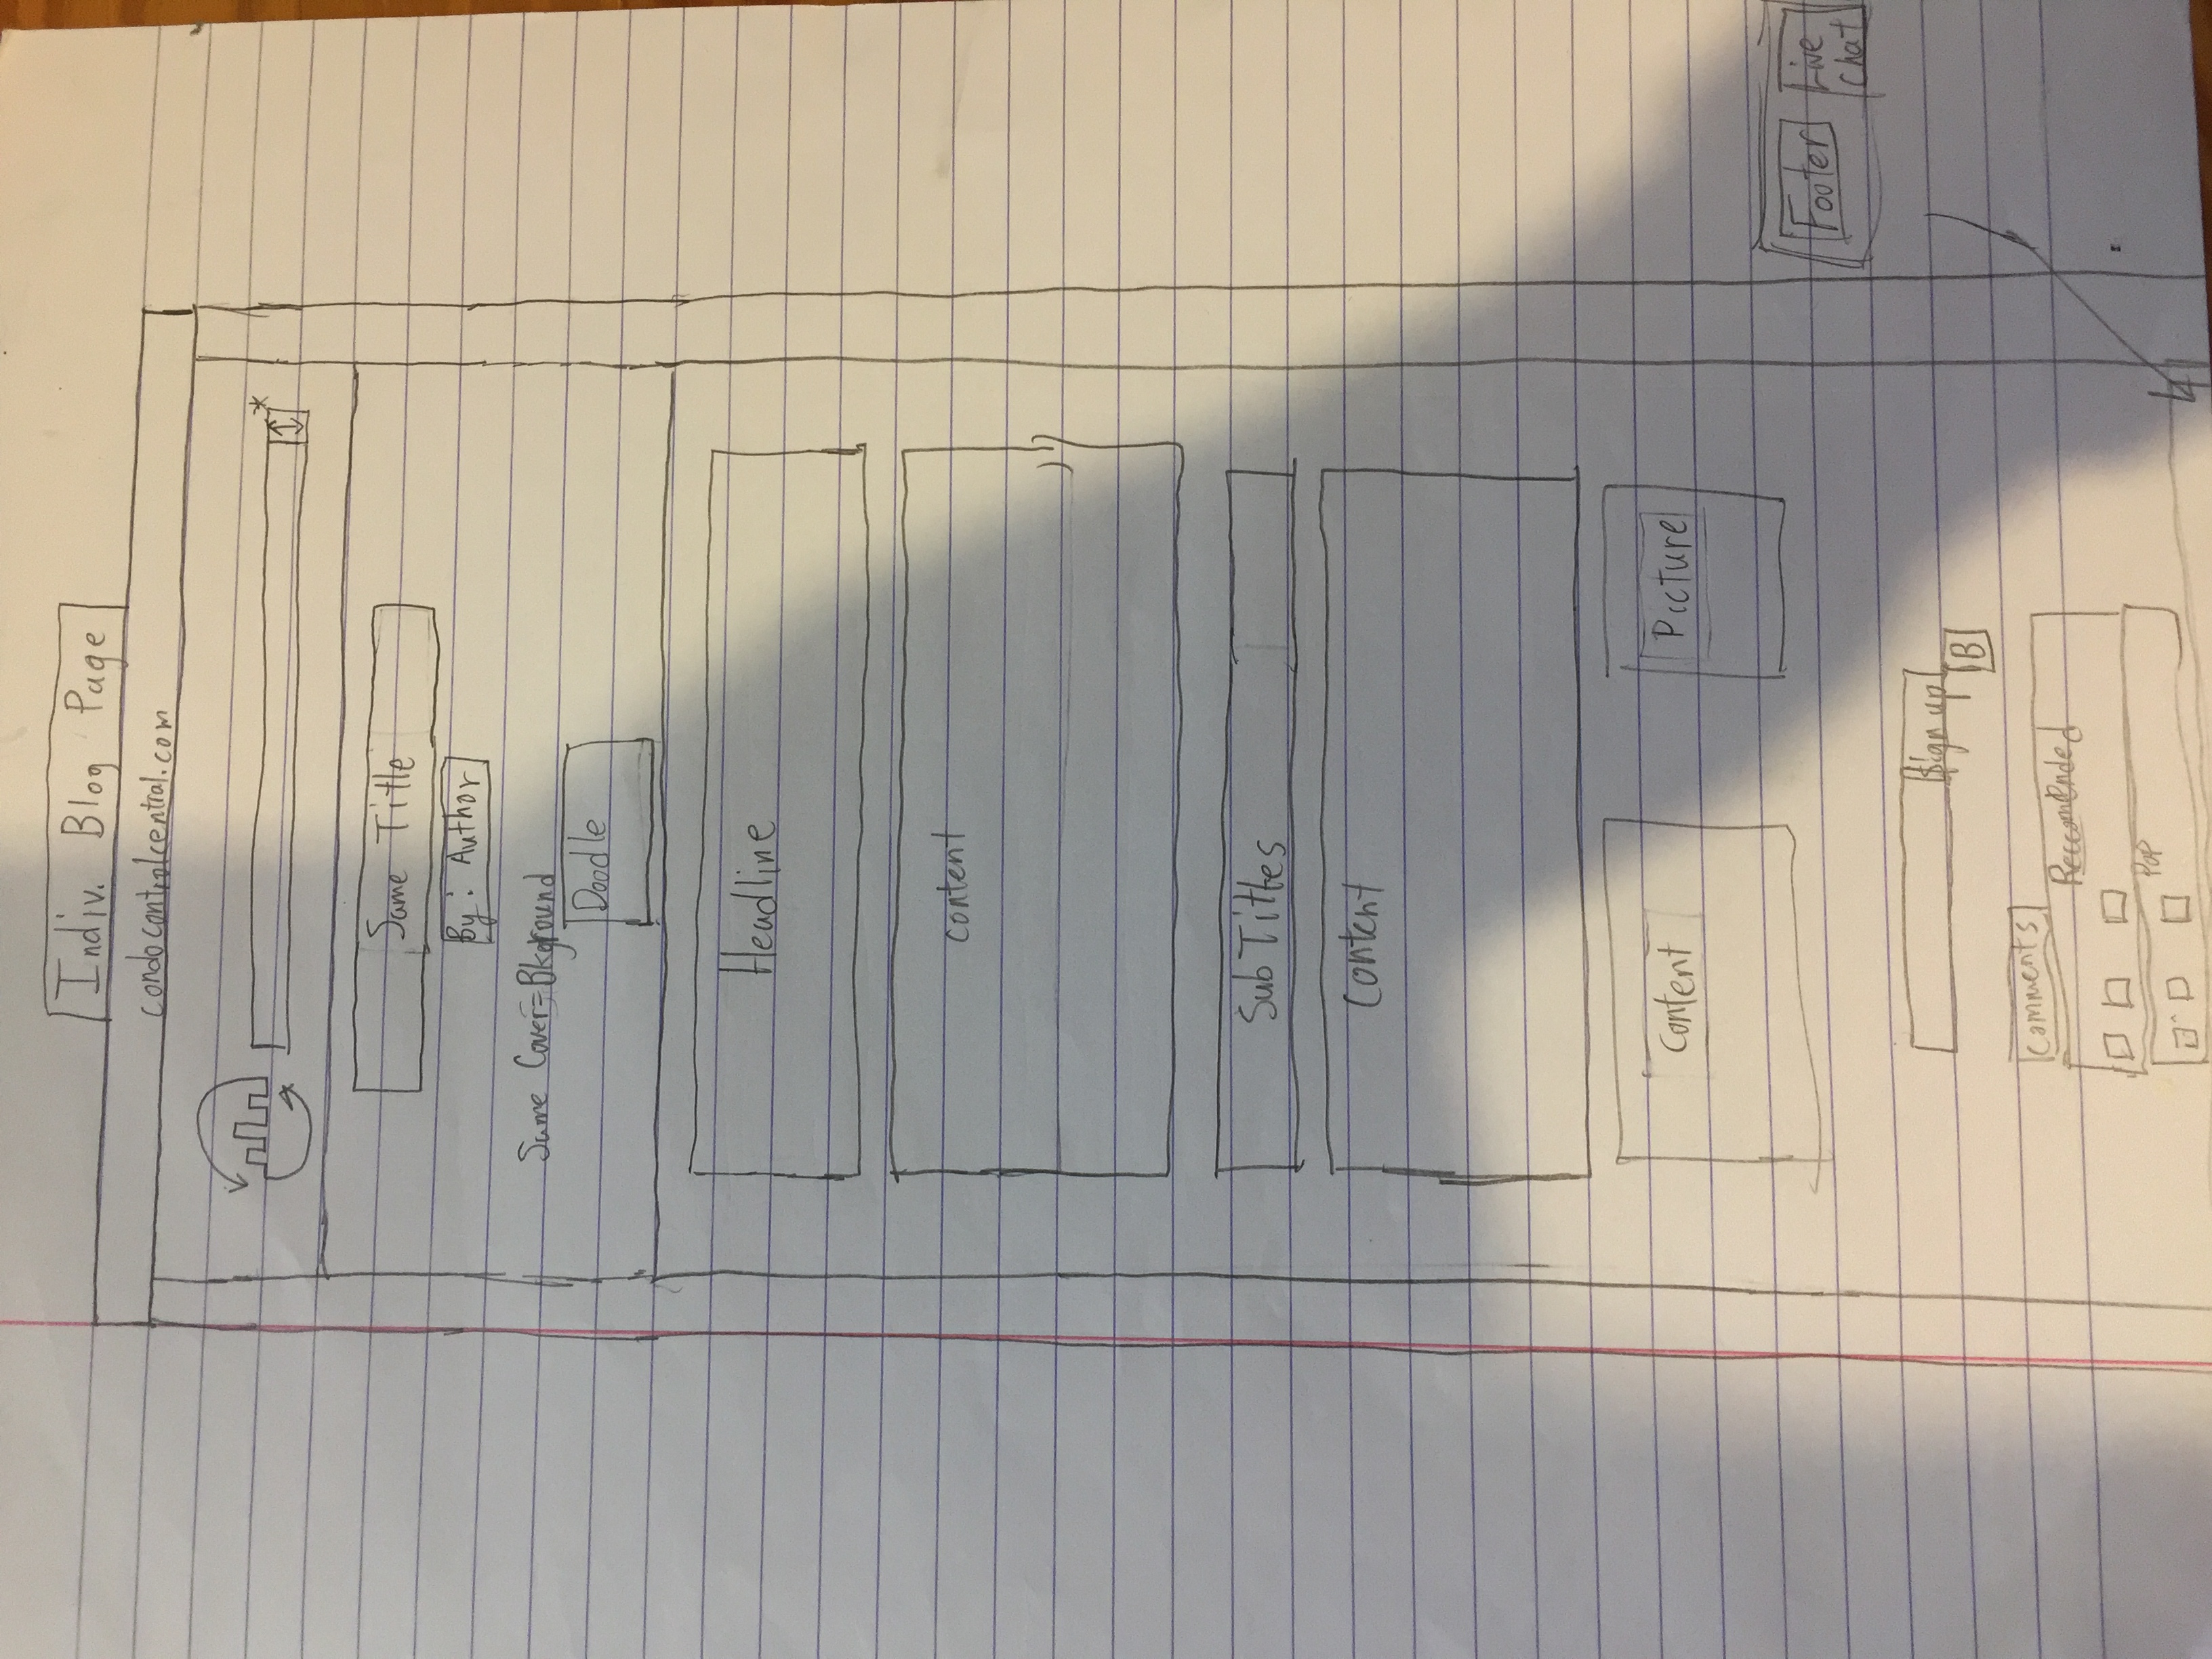 Indiv. Blog Page
condocontrolcentral.com
*
Same Title
By: Author
Same Cover=Bkground
Doodle
Headline
content
Sub Tittes
Content
Content
Picture
Footer
Live
Chat
Sign up
B
Comments
Reccomended
Pop